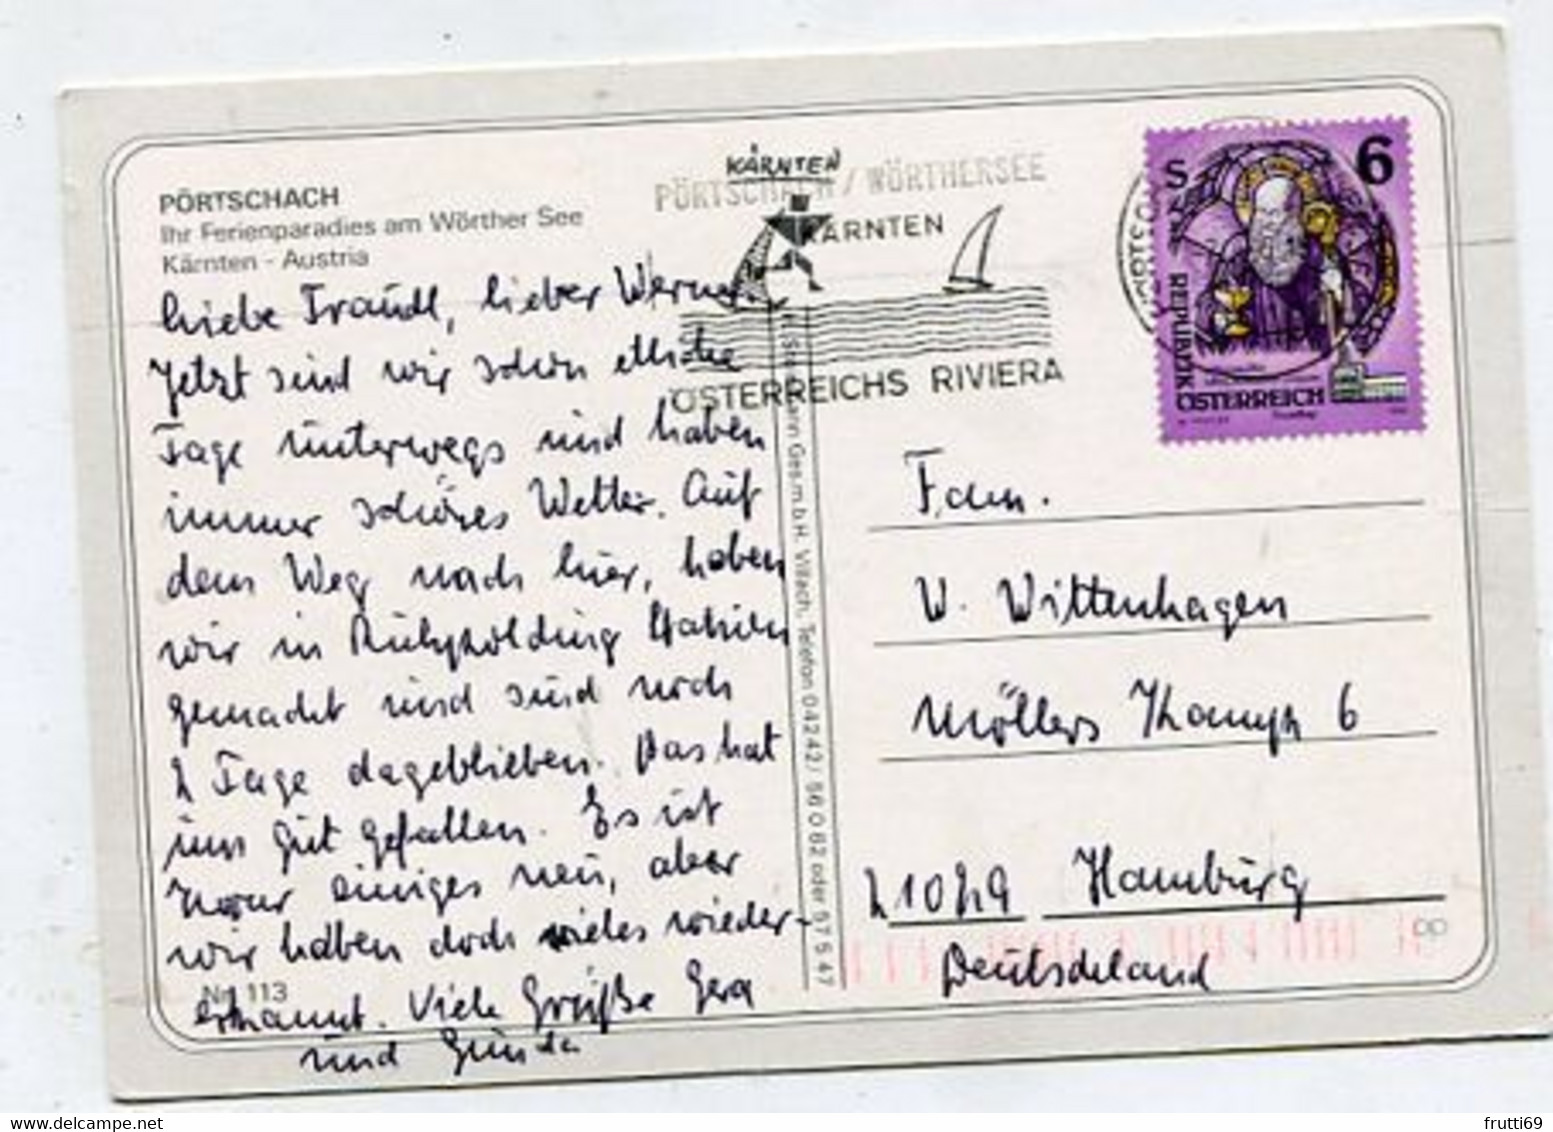 PÖRTSCHACH
Ihr Ferienparadies am Wörther See
Kärnten - Austria
Liebe Traudl, lieber Werner.
Jetzt sind wir schon etliche
Tage unterwegs und haben
immer schönes Wetter. Auf
dem Weg nach hier, haben
wir in Ruhpolding Station
gemacht und sind noch
2 Tage dageblieben. Das hat
uns gut gefallen. Es ist
zwar einiges neu, aber
wir haben doch vieles wieder-
erkannt. Viele Grüße Gera
und Gunda
Nr. 113
KÄRNTEN
PÖRTSCHACH / WÖRTHERSEE
KÄRNTEN
ÖSTERREICHS RIVIERA
Ges.m.b.H. Villach, Telefon 04242/56082 oder 57547
S 6
REPUBLIK
ÖSTERREICH
Fam.
W. Wittenhagen
Möllers Kamp 6
21029 Hamburg
Deutschland
frutti69